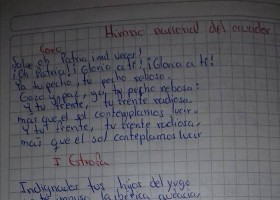 Himno nacional del ecuador
Coro
Salve oh Patria mil veces!
¡Oh Patria! ¡Gloria a tí! ¡Gloria a tí!
Ya tu pecho, tu pecho rebosa.
Gozo y paz, ya tu pecho rebosa:
Y tu frente, tu frente radiosa
más que el sol contemplamos lucir.
Y tu frente, tu frente radiosa,
más que el sol contemplamos lucir
I Estrofa
Indignados tus hijos del yugo